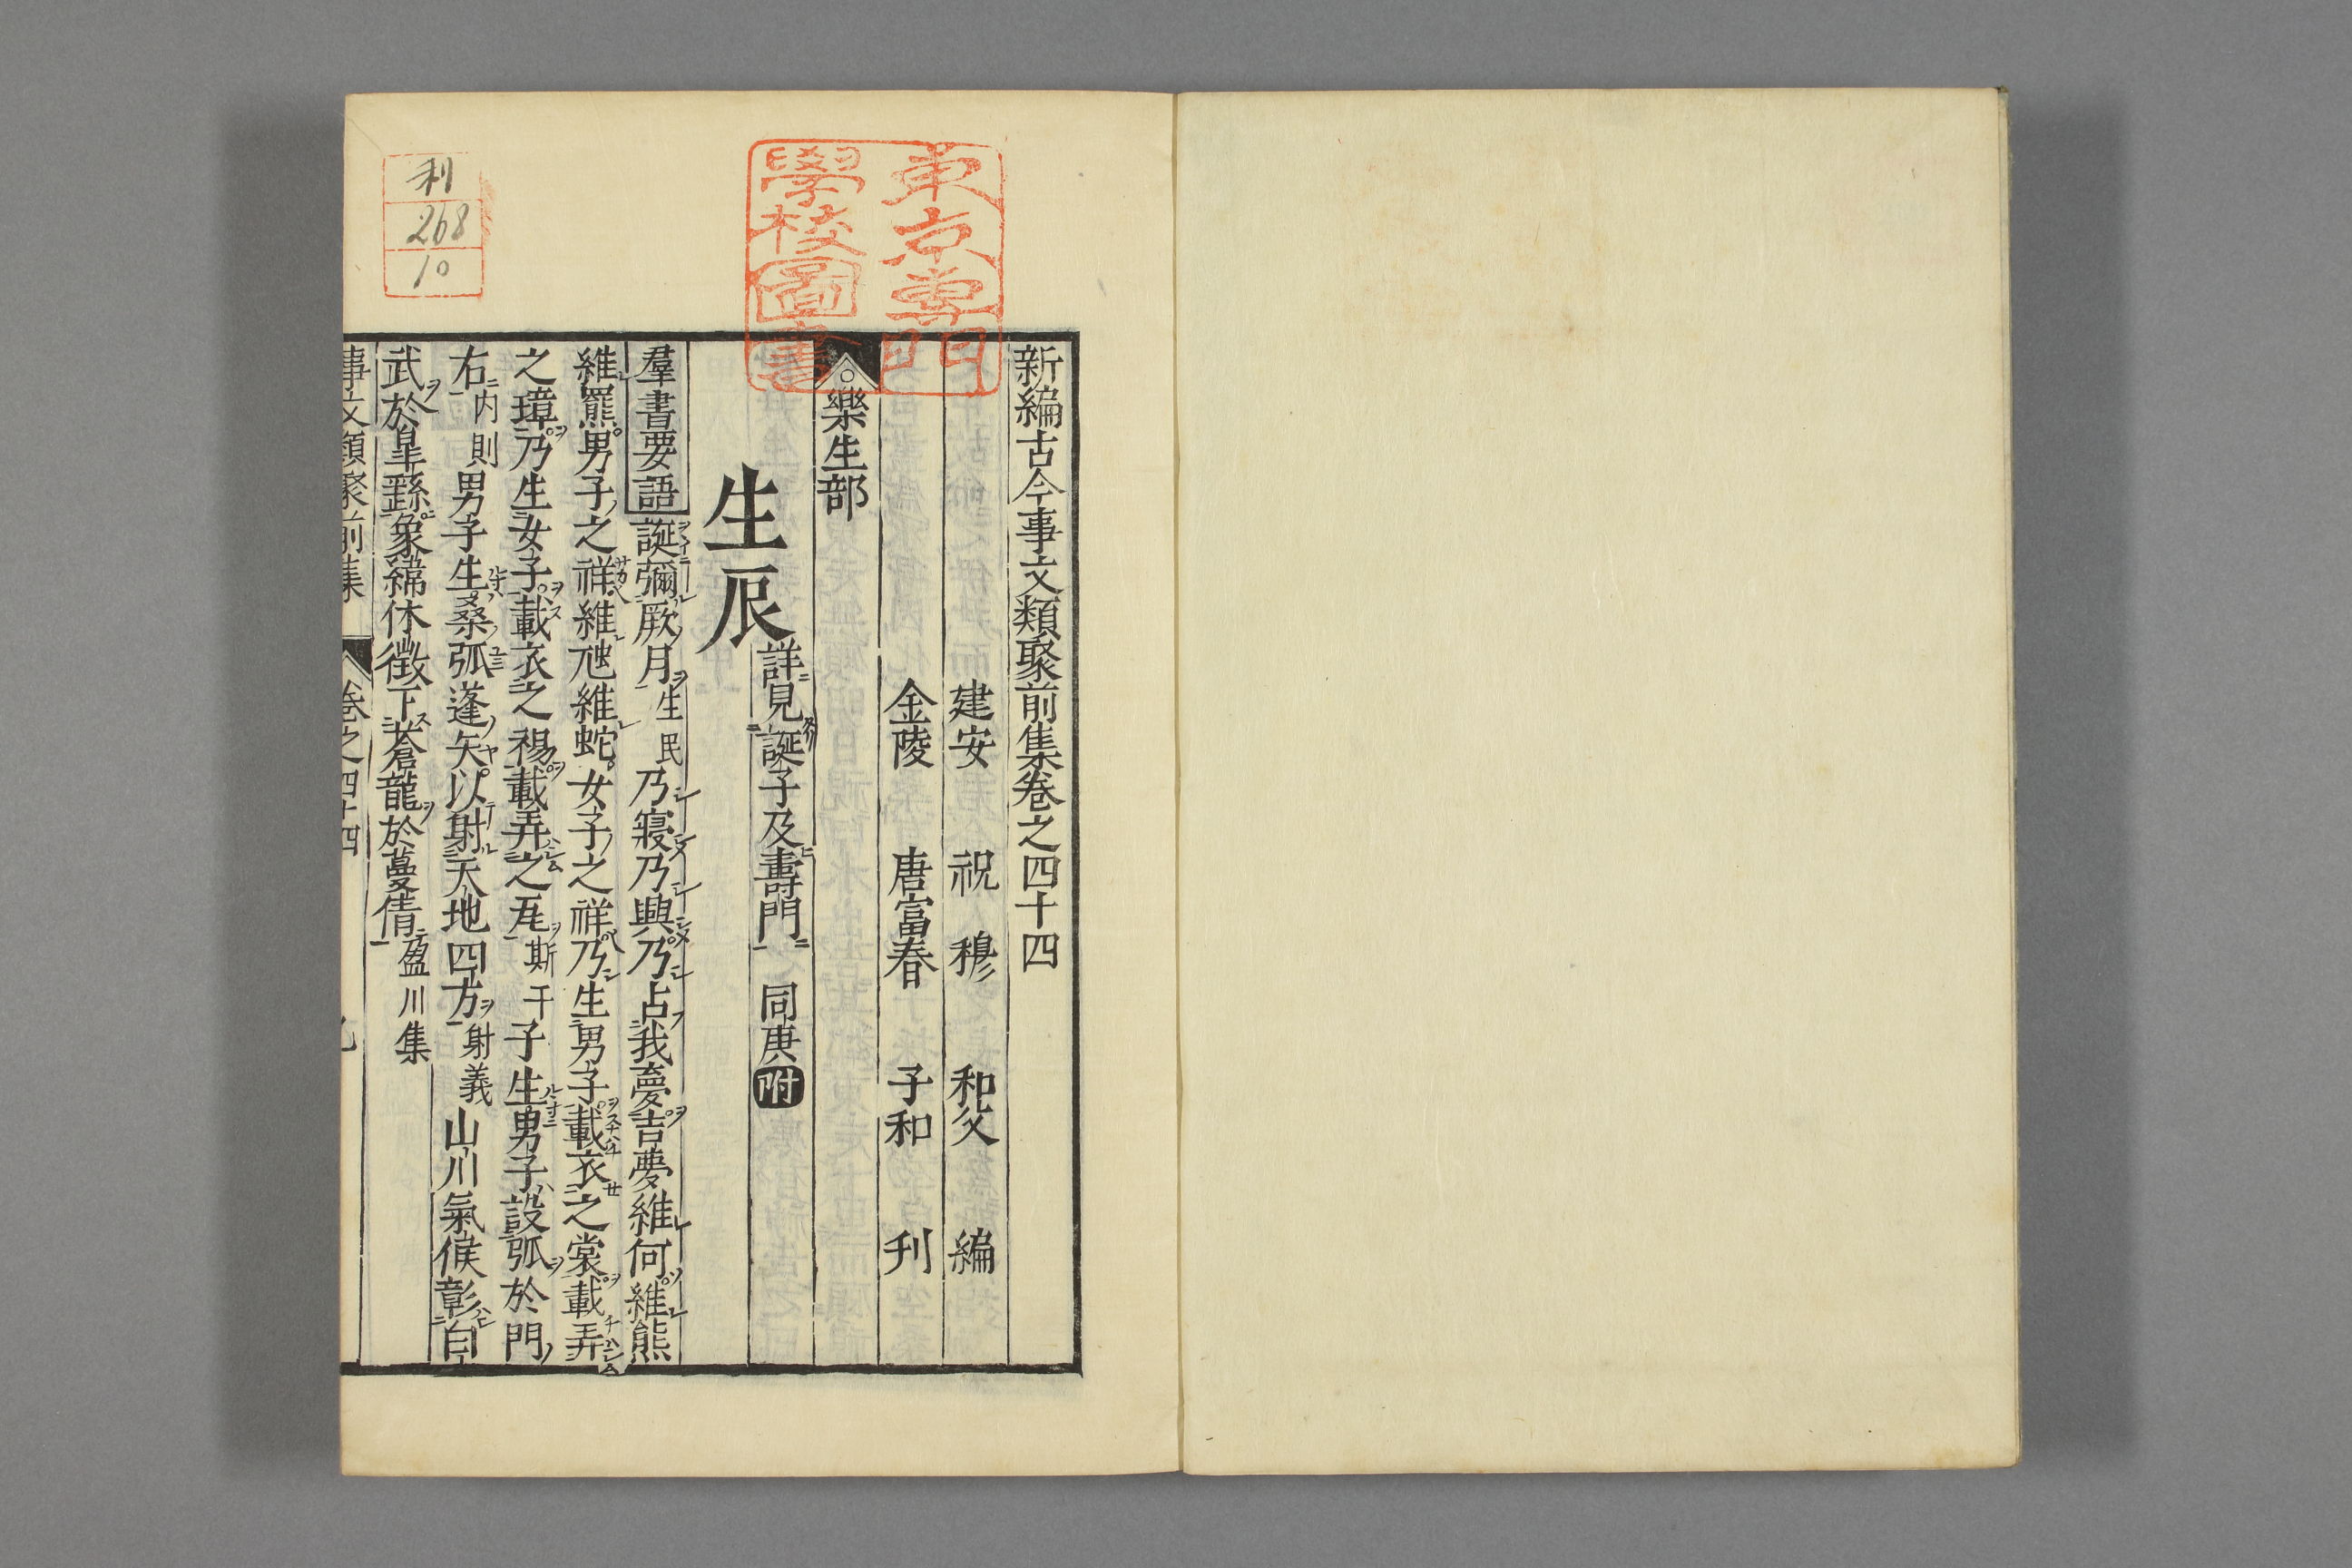 新編古今事文類聚前集卷之四十四
建安 祝 穆 和父 編
金陵 唐富春 子和 刊
樂生部
生辰 詳見誕子及壽門 同庚附
羣書要語 誕彌厥月生民乃寢乃興乃占我夢吉夢維何維熊
維羆男子之祥維虺維蛇女子之祥乃生男子載衣之裳載弄
之璋乃生女子載衣之裼載弄之瓦斯干子生男子設弧於門
右内則男子生桑弧蓬矢以射天地四方射義山川氣候彰白
武於皐繇象緯休徵下蒼龍於蔓倩盈川集
事文類聚前集 卷之四十四
東京專門
學校圖書
利
268
10